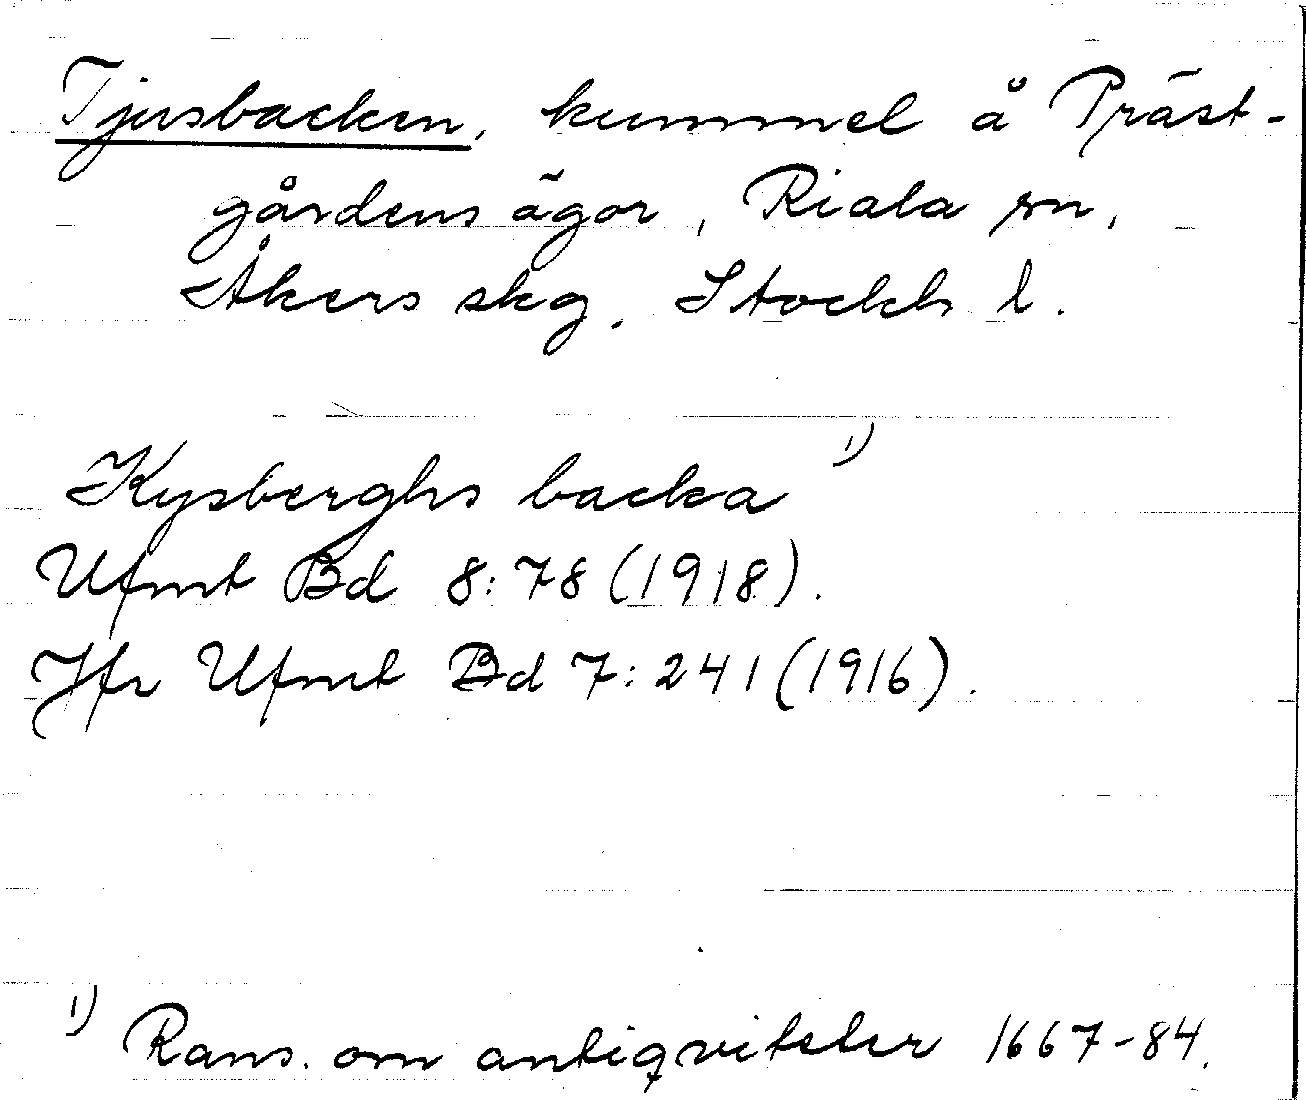 Tjusbacken, kummel å Präst-
gårdens ägor, Riala sn,
Åkers skg. Stockh l.
Kysberghs backa 1)
Ufmt Bd 8:78 (1918).
Jfr Ufmt Bd 7:241 (1916).
1) Rans. om antiqviteter 1667-84.